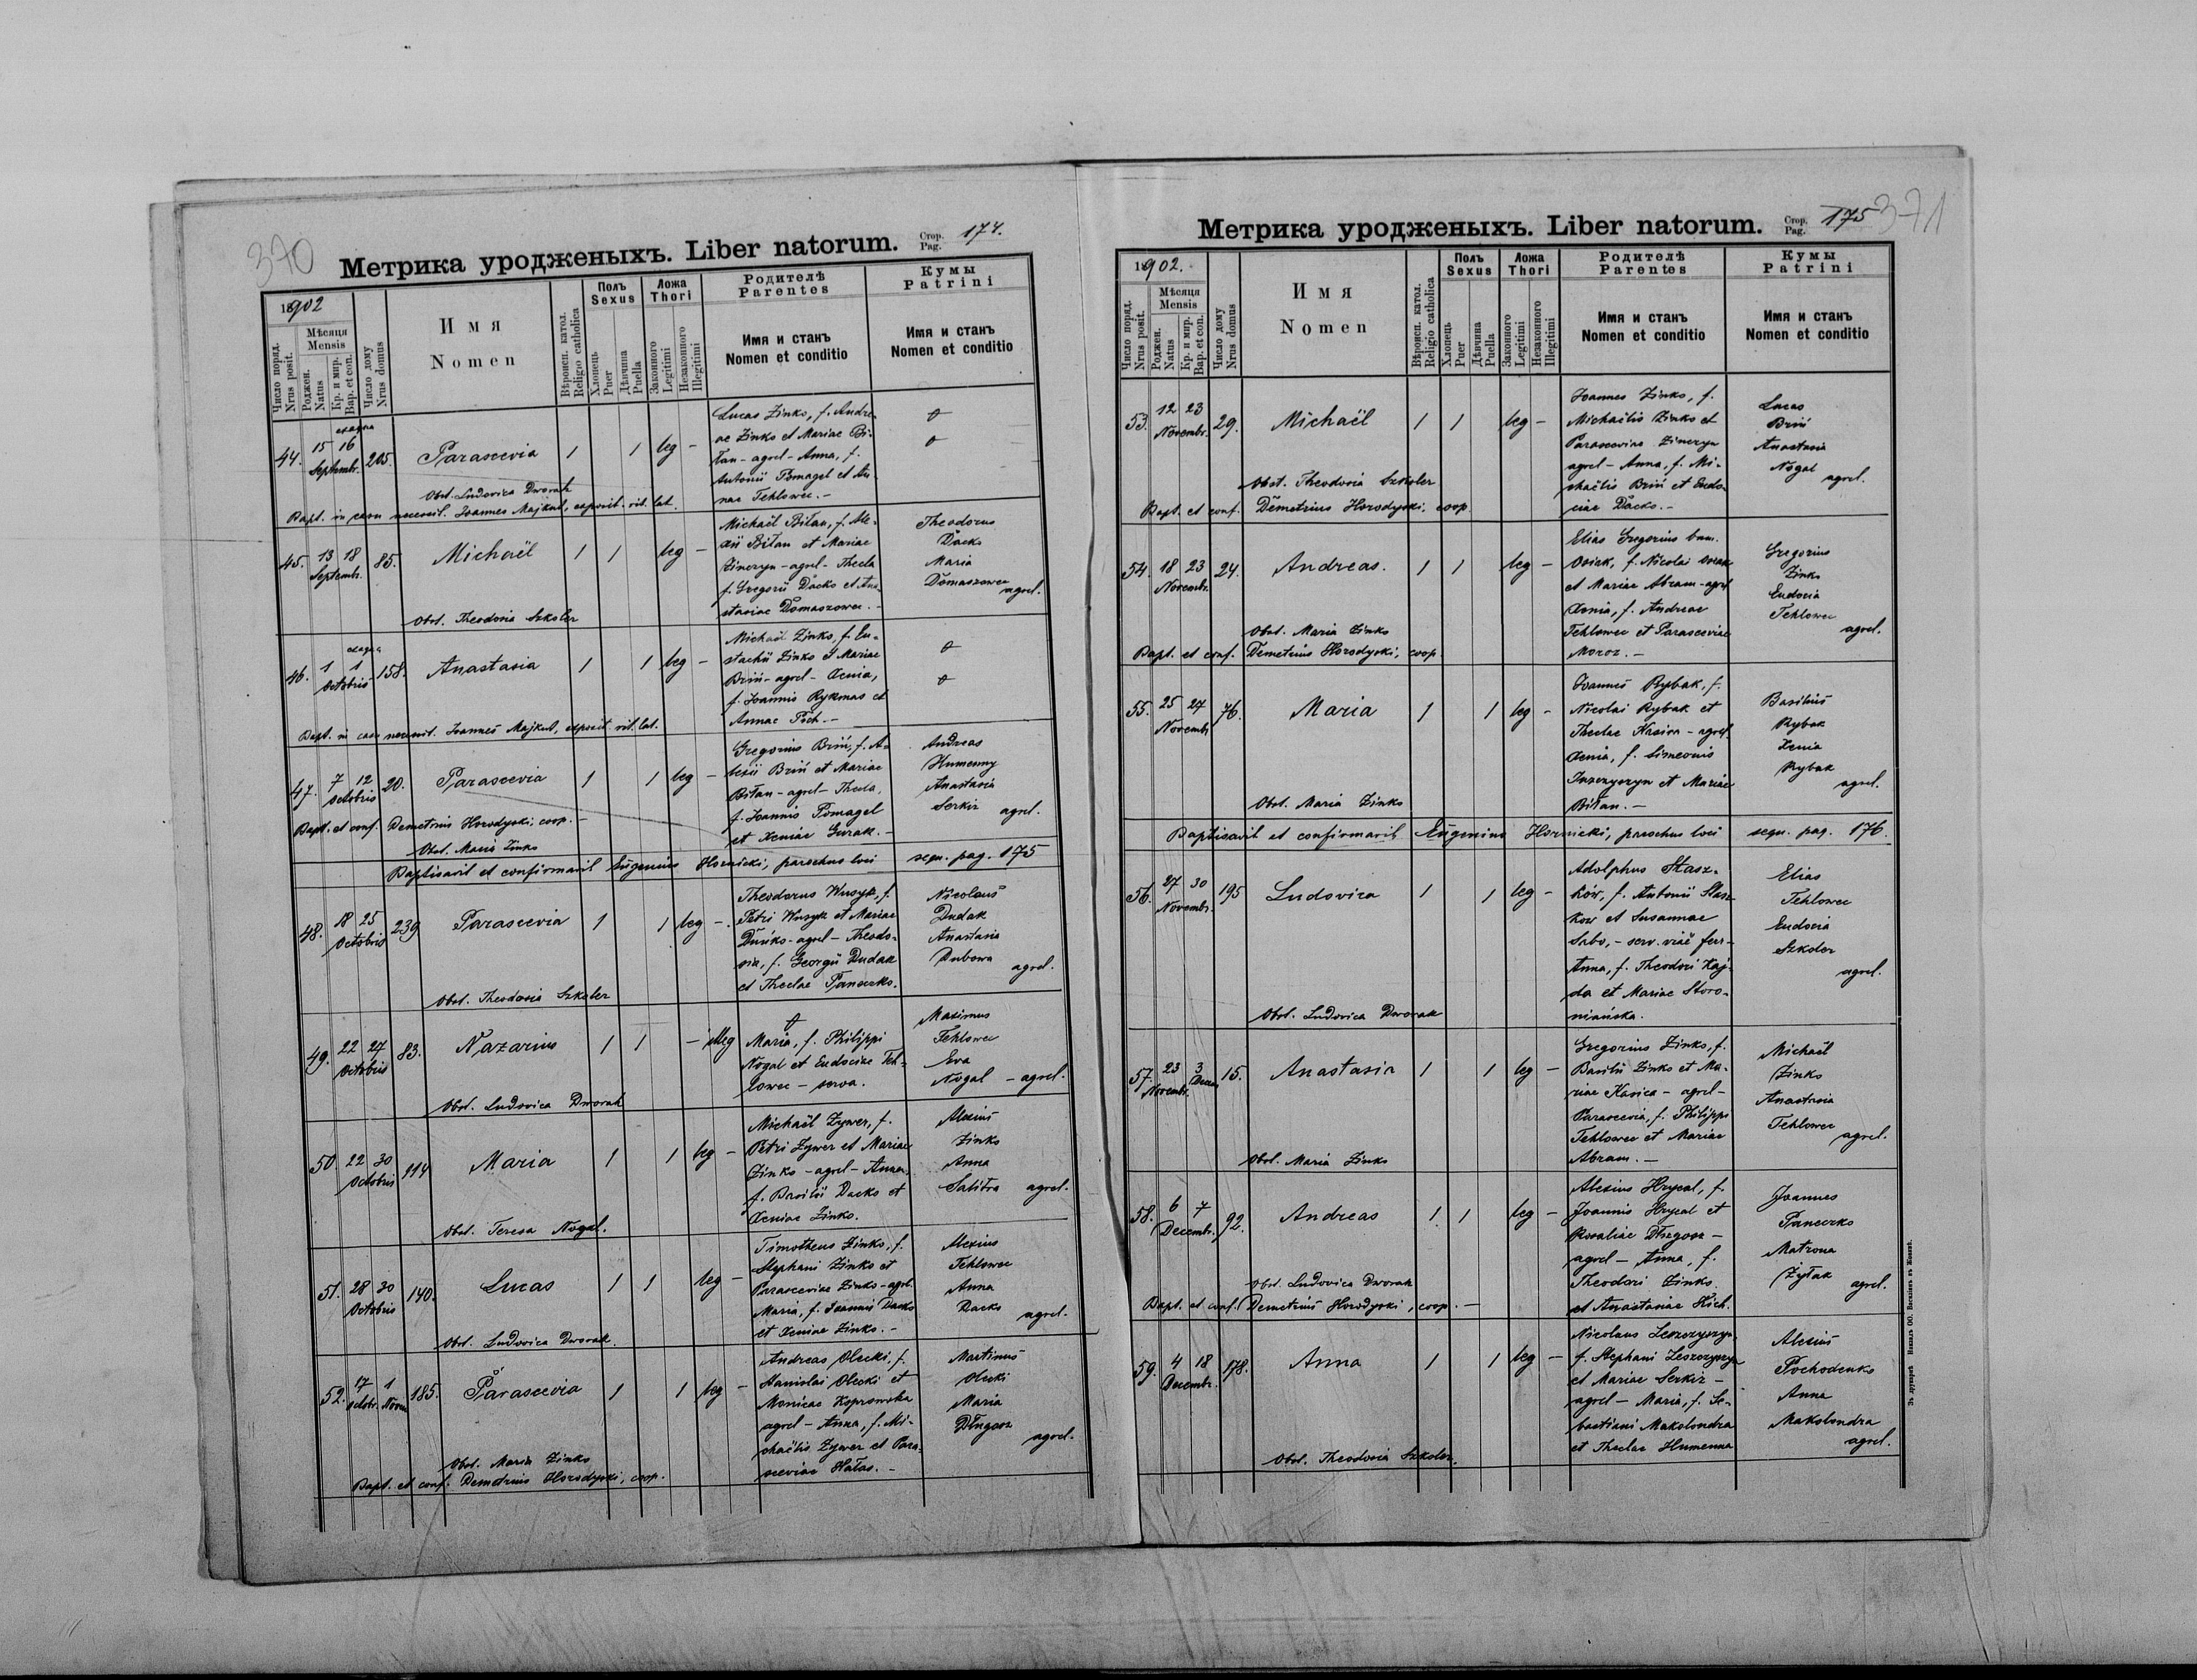 370
Метрика уродженыхъ. Liber natorum.
Стор. Pag. 174.
1902
Число поряд. Nrus posit.
Мѣсяця Mensis
Роджен. Natus
Кр. и мир. Bap. et con.
Число дому Nrus domus
Имя Nomen
Вѣроисп. катол. Religio catholica
Полъ Sexus
Хлопець Puer
Дѣвчина Puella
Ложа Thori
Законного Legitimi
Незаконного Illegitimi
Родителѣ Parentes
Имя и станъ Nomen et conditio
Кумы Patrini
Имя и станъ Nomen et conditio
44. 15 16 Septembr. 205. Parascevia 1 1 leg -
Lucas Zinko, f. Andre-
ae Zinko et Mariae Bi-
łan - agrel - Anna, f.
Antonii Pomagel et An-
nae Tehlowec. -
Obst. Ludovica Dworak
Bapt. in casu necessit. Joannes Majkut, exposit. rit. lat.
45. 13 18 Septembr. 85. Michaël 1 1 leg -
Michaël Biłan, f. Ale-
xii Biłan et Mariae
Zinczyn - agrel - Thecla
f. Gregorii Dacko et Ana-
stasiae Domaszowec. -
Theodorus
Dacko
Maria
Domaszowec
agrel.
Obst. Theodosia Szkoler
46. 1 1 Octobris 158. Anastasia 1 1 leg -
Michaël Zinko, f. Eu-
stachii Zinko et Mariae
Briń - agrel - Xenia,
f. Joannis Rykmas et
Annae Poch. -
Bapt. in casu necessit. Joannes Majkut, exposit. rit. lat.
47. 7 12 Octobris 20. Parascevia 1 1 leg -
Gregorius Briń, f. A-
lexii Briń et Mariae
Biłan - agrel - Thecla,
f. Joannis Pomagel
et Xeniae Gurak. -
Andreas
Humenny
Anastasia
Serkiz
agrel.
Bapt. et conf. Demetrius Horodyski, coop. -
Obst. Maria Zinko
Baptisavit et confirmavit Eugenius Hornicki, parochus loci sequ. pag. 175
48. 18 25 Octobris 239 Parascevia 1 1 leg -
Theodorus Wusyk, f.
Petri Wusyk et Mariae
Duńko - agrel - Theodo-
sia, f. Georgii Dudak
et Theclae Paneczko.
Nicolaus
Dudak
Anastasia
Dubowa
agrel.
Obst. Theodosia Szkoler
49. 22 27 Octobris 83. Nazarius 1 1 - illeg
Maria, f. Philippi
Nogal et Eudociae Teh-
lowec - serva.
Maximus
Tehlowec
Eva
Nogal - agrel.
Obst. Ludovica Dworak
50. 22 30 Octobris 114 Maria 1 1 leg -
Michaël Zywer, f.
Petri Zywer et Mariae
Zinko - agrel - Anna,
f. Basilii Dacko et
Xeniae Zinko.
Alexius
Zinko
Anna
Salitra agrel.
Obst. Teresa Nogal.
51. 28 30 Octobris 140. Lucas 1 1 leg -
Timotheus Zinko, f.
Stephani Zinko et
Parasceviae Zinko - agrel.
Maria, f. Joannis Dacko
et Xeniae Zinko. -
Alexius
Tehlowec
Anna
Dacko
agrel.
Obst. Ludovica Dworak.
52. 17 Octobr. 1 Novem. 185. Parascevia 1 1 leg -
Andreas Olecki, f.
Stanislai Olecki et
Monicae Koprowska
agrel - Anna, f. Mi-
chaëlis Zywer et Para-
sceviae Hałas. -
Martinus
Olecki
Maria
Długosz
agrel.
Obst. Maria Zinko
Bapt. et conf. Demetrius Horodyski, coop.
Метрика уродженыхъ. Liber natorum.
Стор. Pag. 175
371
1902.
Число поряд. Nrus posit.
Мѣсяця Mensis
Роджен. Natus
Кр. и мир. Bap. et con.
Число дому Nrus domus
Имя Nomen
Вѣроисп. катол. Religio catholica
Полъ Sexus
Хлопець Puer
Дѣвчина Puella
Ложа Thori
Законного Legitimi
Незаконного Illegitimi
Родителѣ Parentes
Имя и станъ Nomen et conditio
Кумы Patrini
Имя и станъ Nomen et conditio
53. 12 23 Novembr. 29. Michaël 1 1 leg -
Joannes Zinko, f.
Michaëlis Zinko et
Parasceviae Zinczyn
agrel - Anna, f. Mi-
chaëlis Briń et Eudo-
ciae Dacko. -
Lucas
Briń
Anastasia
Nogal
agrel.
Obst. Theodosia Szkoler
Bapt. et conf. Demetrius Horodyski, coop.
54. 18 23 Novembr. 24. Andreas. 1 1 leg -
Elias Gregorius bin.
Osiak, f. Nicolai Osiak
et Mariae Abram - agrel
Xenia, f. Andreae
Tehlowec et Parasceviae
Moroz. -
Gregorius
Zinko
Eudocia
Tehlowec
agrel.
Obst. Maria Zinko
Bapt. et conf. Demetrius Horodyski, coop.
55. 25 27 Novembr. 76. Maria 1 1 leg -
Joannes Rybak, f.
Nicolai Rybak et
Theclae Kasica - agrel.
Xenia, f. Simeonis
et Mariae
Biłan. -
Basilius
Rybak
Xenia
Rybak
agrel.
Obst. Maria Zinko
Baptisavit et confirmavit Eugenius Hornicki, parochus loci sequ. pag. 176.
56. 27 30 Novembr. 195 Ludovica 1 1 leg -
Adolphus Stasz-
ków, f. Antonii Stasz-
kow et Susannae
Sabo, - serv. viae ferr -
Anna, f. Theodori Kaj-
da et Mariae Storo-
niańska.
Elias
Tehlowec
Eudocia
Szkoler
agrel.
Obst. Ludovica Dworak
57. 23 Novembr. 3 Decem. 15. Anastasia 1 1 leg -
Gregorius Zinko, f.
Basilii Zinko et Ma-
riae Kasica - agrel -
Parascevia, f. Philippi
Tehlowec et Mariae
Abram. -
Michaël
Zinko
Anastasia
Tehlowec
agrel.
Obst. Maria Zinko
58. 6 7 Decembr. 92. Andreas 1 1 leg -
Alexius Hrycal, f.
Joannis Hrycal et
Rosaliae Długosz -
agrel - Anna, f.
Theodori Zinko
et Anastasiae Kich.
Joannes
Paneczko
Matrona
Żyłak
agrel.
Obst. Ludovica Dworak
Bapt. et conf. Demetrius Horodyski, coop. -
59. 4 18 Decembr. 178. Anna 1 1 leg -
Nicolaus Leszczyszyn
f. Stephani Leszczyszyn
et Mariae Serkiz -
agrel - Maria, f. Se-
bastiani Makolondra
et Theclae Humenna
Alexius
Pochodenko
Anna
Makolondra
agrel.
Obst. Theodosia Szkoler.